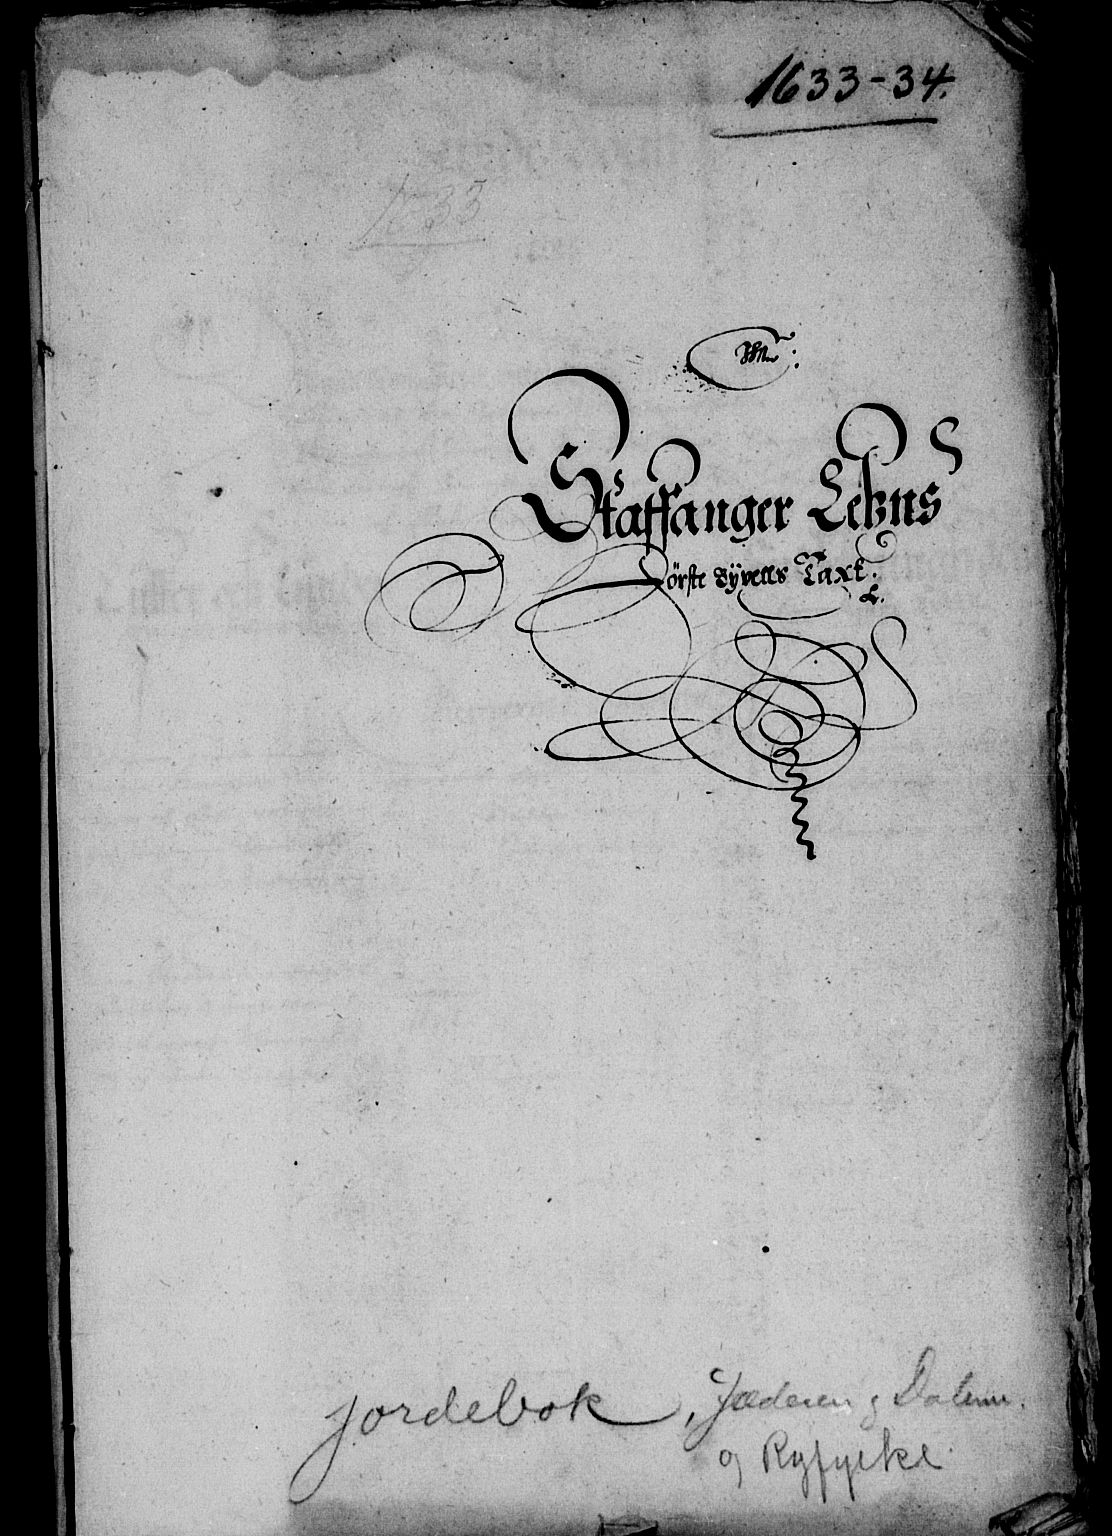 1633-34.
1633
Staffanger Lehns
Förste Tÿvells Taxt.
Jordebok, Jæderen og Dalerne.
og Ryfylke.